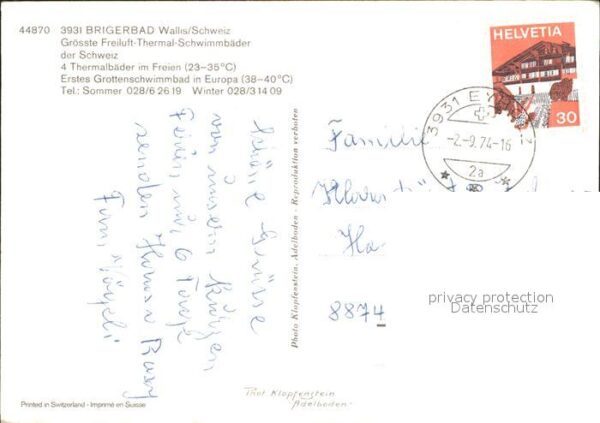 44870 3931 BRIGERBAD Wallis/Schweiz
Grösste Freiluft-Thermal-Schwimmbäder
der Schweiz
4 Thermalbäder im Freien (23–35°C)
Erstes Grottenschwimmbad in Europa (38–40°C)
Tel.: Sommer 028/6 26 19 Winter 028/3 14 09
HELVETIA
30
3931 EY
-2.-9.74-16
2a
Schöne Grüsse
von unsern kurzen
Ferien, 6 Tage
senden
Fam.
Photo Klopfenstein, Adelboden - Reproduktion verboten
Familie
Ha
8874
privacy protection
Datenschutz
Phot Klopfenstein
Adelboden.
Printed in Switzerland - Imprimé en Suisse